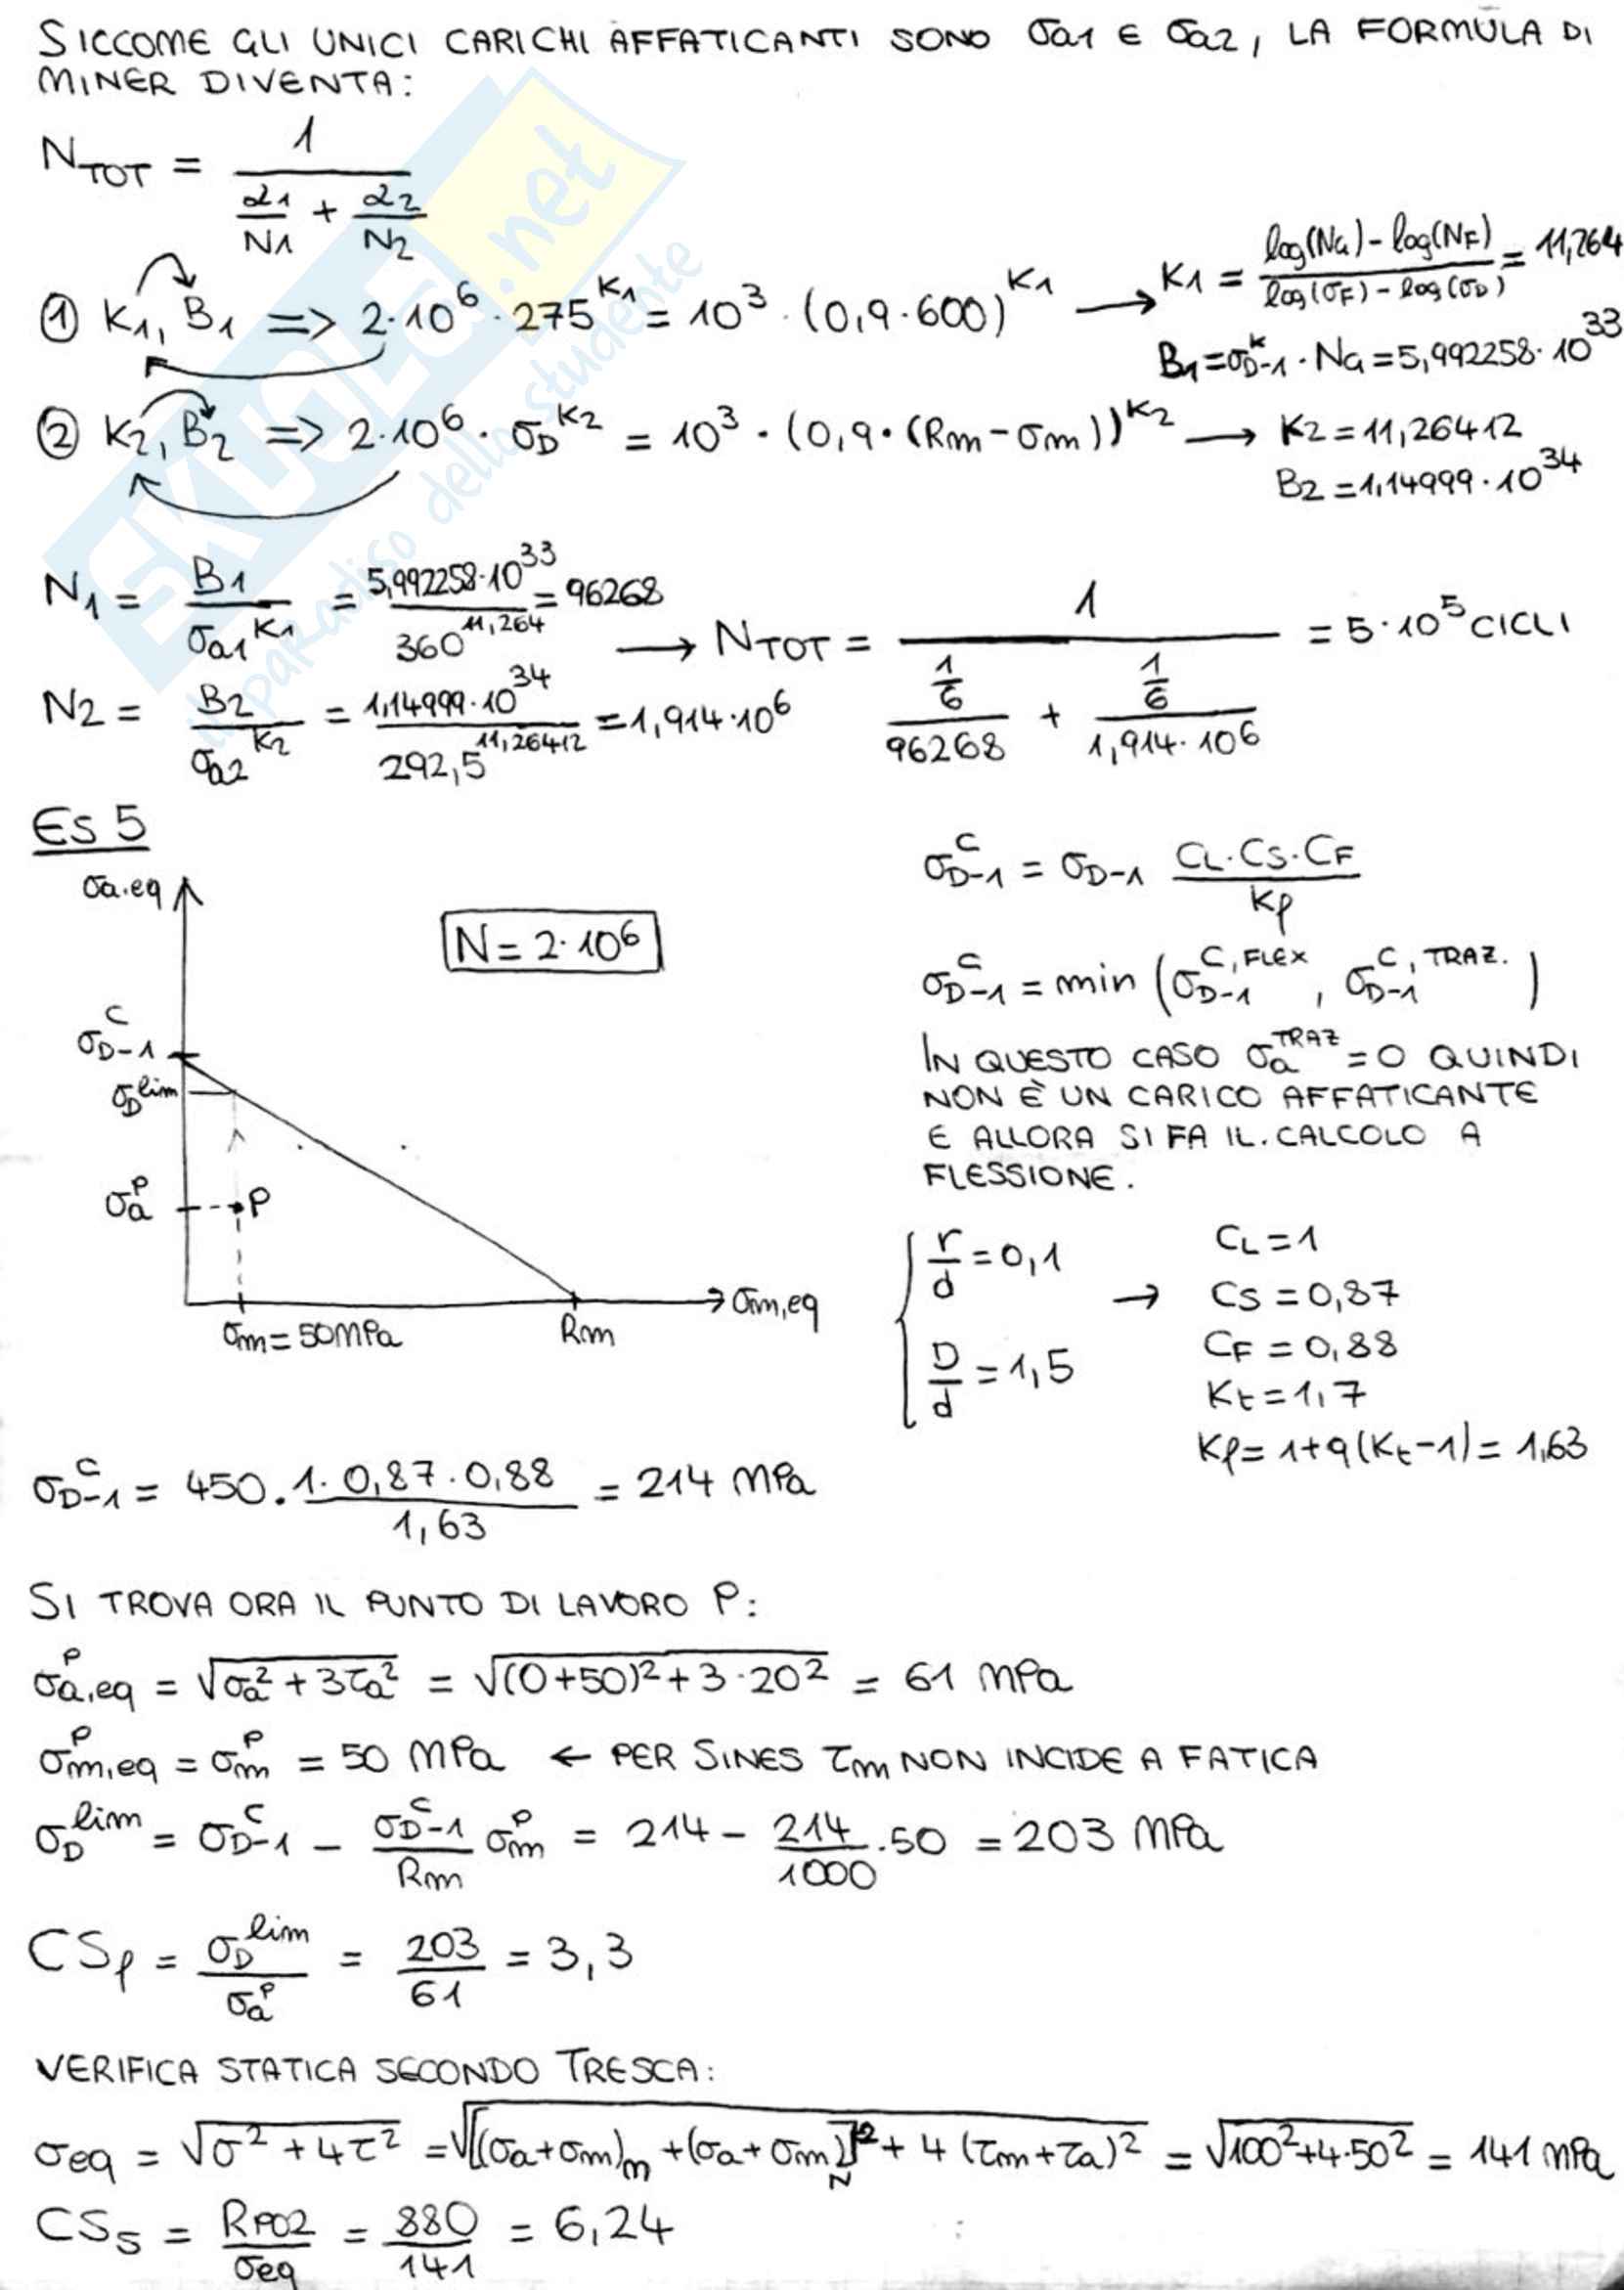 SICCOME GLI UNICI CARICHI AFFATICANTI SONO σa1 E σa2, LA FORMULA DI
MINER DIVENTA:
N_TOT = 1 / (α1/N1 + α2/N2)
① K1, B1 => 2·10^6 · 275^K1 = 10^3 · (0,9·600)^K1 → K1 = (log(Na) - log(NF)) / (log(σF) - log(σD)) = 11,264
B1 = σD-1^k · Na = 5,992258·10^33
② K2, B2 => 2·10^6 · σD^K2 = 10^3 · (0,9·(Rm-σm))^K2 → K2 = 11,26412
B2 = 1,14999·10^34
N1 = B1 / σa1^K1 = 5,992258·10^33 / 360^11,264 = 96268 → N_TOT = 1 / ((1/6)/96268 + (1/6)/(1,914·10^6)) = 5·10^5 CICLI
N2 = B2 / σa2^K2 = 1,14999·10^34 / 292,5^11,26412 = 1,914·10^6
ES 5
σa,eq
N = 2·10^6
σD-1^C
σD^lim
σa^P
P
σm = 50MPa
Rm
σm,eq
σD-1^C = σD-1 CL·CS·CF / Kf
σD-1^C = min (σD-1^C,FLEX , σD-1^C,TRAZ.)
IN QUESTO CASO σa^TRAZ = 0 QUINDI
NON È UN CARICO AFFATICANTE
E ALLORA SI FA IL CALCOLO A
FLESSIONE.
r/d = 0,1
D/d = 1,5
→
CL = 1
CS = 0,87
CF = 0,88
Kt = 1,7
Kf = 1+q(Kt-1) = 1,63
σD-1^C = 450 · 1·0,87·0,88 / 1,63 = 214 MPa
SI TROVA ORA IL PUNTO DI LAVORO P:
σa,eq^P = √(σa^2 + 3τa^2) = √((0+50)^2 + 3·20^2) = 61 MPa
σm,eq^P = σm^P = 50 MPa ← PER SINES τm NON INCIDE A FATICA
σD^lim = σD-1^C - σD-1^C / Rm σm^P = 214 - 214/1000 · 50 = 203 MPa
CSf = σD^lim / σa^P = 203 / 61 = 3,3
VERIFICA STATICA SECONDO TRESCA:
σeq = √(σ^2 + 4τ^2) = √([(σa+σm)m + (σa+σm)N]^2 + 4(τm+τa)^2) = √(100^2 + 4·50^2) = 141 MPa
CSs = RP02 / σeq = 880 / 141 = 6,24
SKUOLA.net
il paradiso dello studente